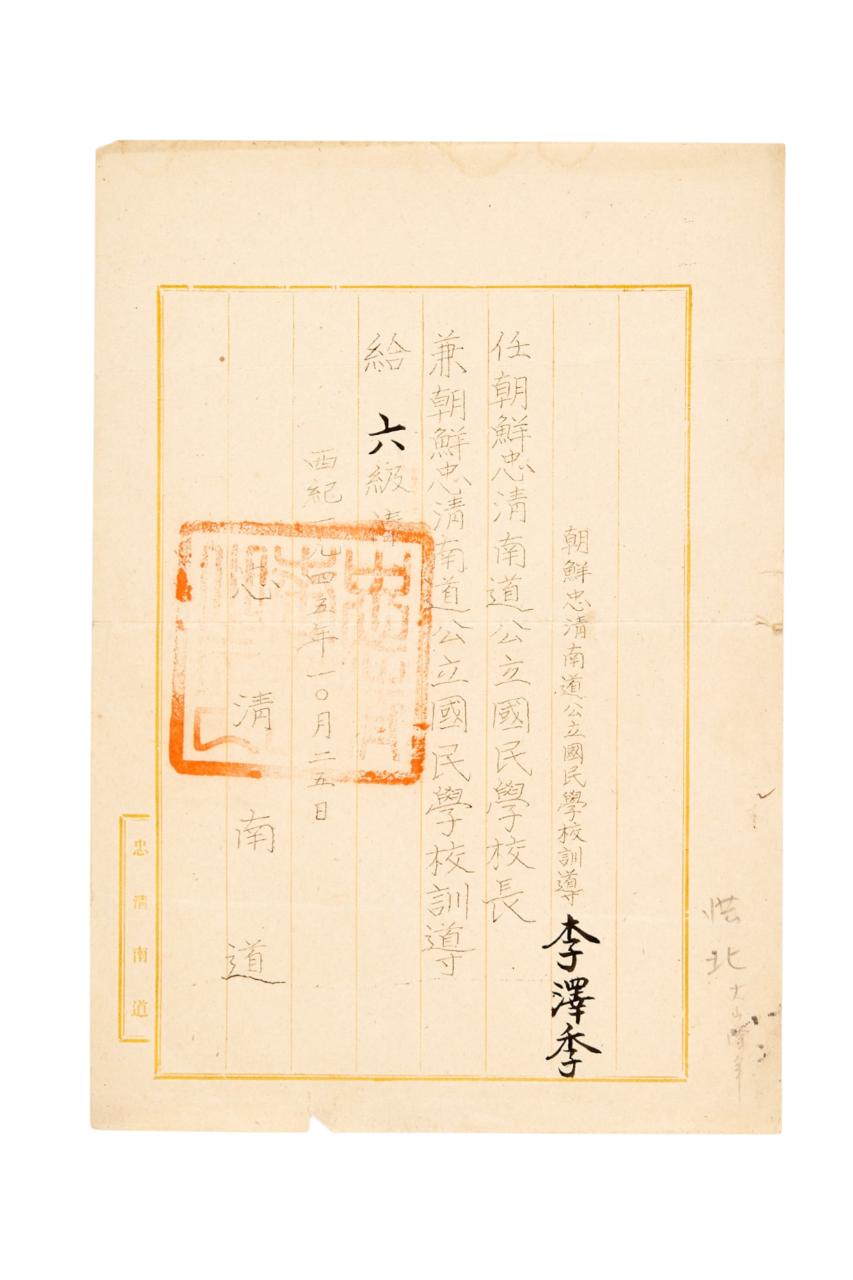 朝鮮忠清南道公立國民學校訓導 李澤季
任朝鮮忠清南道公立國民學校長
兼朝鮮忠清南道公立國民學校訓導
給 六級
西紀一九四五年一〇月二五日
忠清南道
忠清南道
北